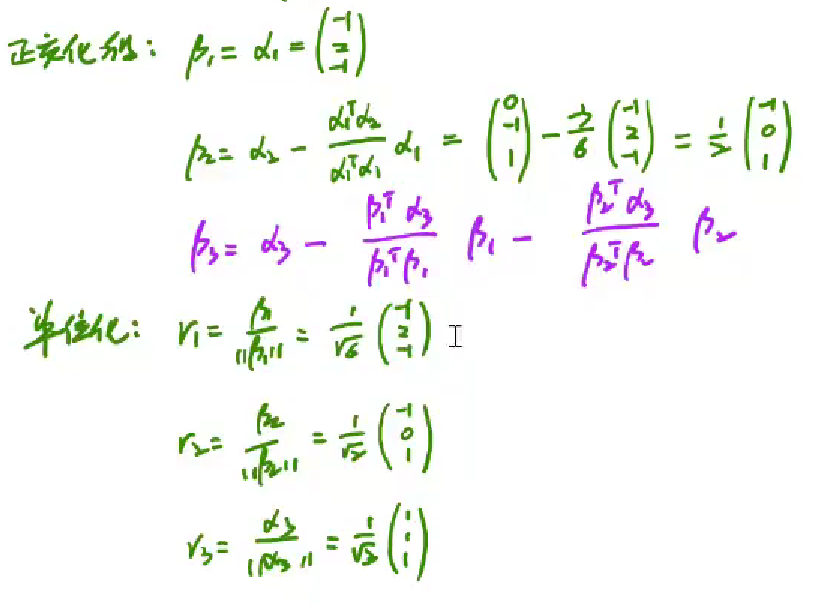 正交化法: β₁ = α₁ = (-1 2 -1)
β₂ = α₂ - (α₁ᵀα₂)/(α₁ᵀα₁) α₁ = (0 -1 1) - (-3)/6 (-1 2 -1) = 1/2 (-1 0 1)
β₃ = α₃ - (β₁ᵀα₃)/(β₁ᵀβ₁) β₁ - (β₂ᵀα₃)/(β₂ᵀβ₂) β₂
单位化: r₁ = β₁/||β₁|| = 1/√6 (-1 2 -1)
r₂ = β₂/||β₂|| = 1/√2 (-1 0 1)
r₃ = α₃/||α₃|| = 1/√3 (1 1 1)